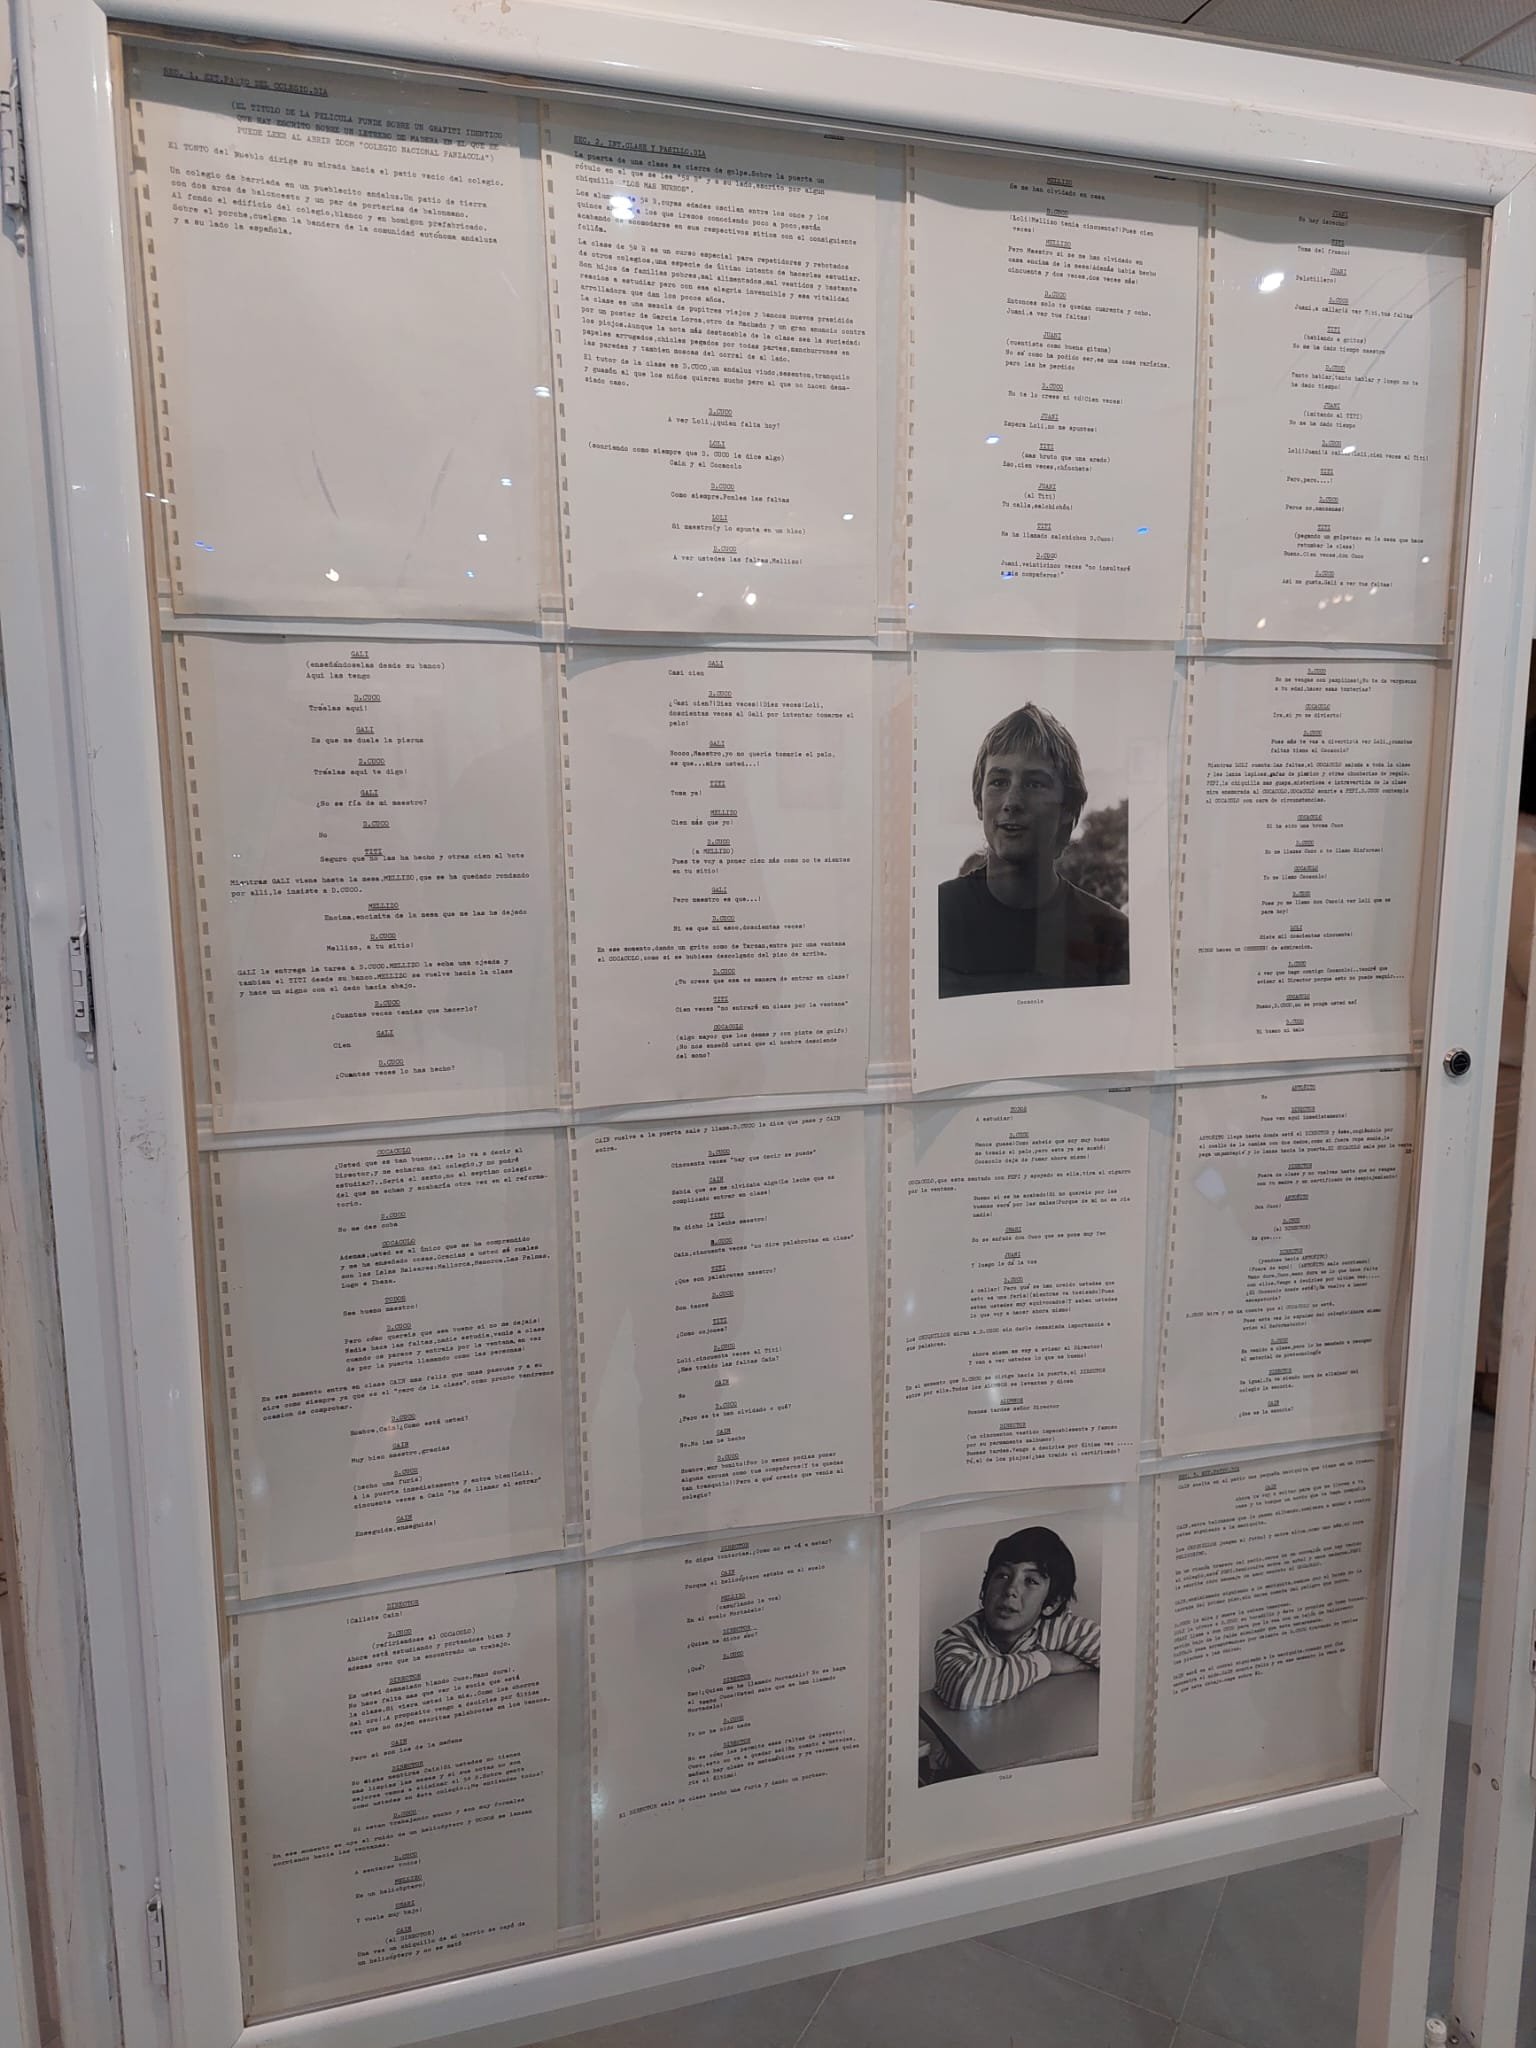 SEC. 1. EXT.PATIO DEL COLEGIO.DIA
(EL TITULO DE LA PELICULA FUNDE SOBRE UN GRAFITI IDENTICO
QUE HAY ESCRITO SOBRE UN LETRERO DE MADERA EN EL QUE SE
PUEDE LEER AL ABRIR ZOOM "COLEGIO NACIONAL PANZACOLA")
El TONTO del Pueblo dirige su mirada hacia el patio vacío del colegio.
Un colegio de barriada en un pueblecito andaluz.Un patio de tierra
con dos aros de baloncesto y un par de porterías de balonmano.
Al fondo el edificio del colegio,blanco y en homigon prefabricado.
Sobre el porche,cuelgan la bandera de la comunidad autónoma andaluza
y a su lado la española.
SEC. 2. INT.CLASE Y PASILLO.DIA
La puerta de una clase se cierra de golpe.Sobre la puerta un
rótulo en el que se lee "5º H" y a su lado,escrito por algun
chiquillo "LOS MAS BURROS".
Los alumnos de 5º H,cuyas edades oscilan entre los once y los
quince a los que iremos conociendo poco a poco,están
acabando de acomodarse en sus respectivos sitios con el consiguiente
follón.
La clase de 5º H es un curso especial para repetidores y rebotados
de otros colegios,una especie de último intento de hacerles estudiar.
Son hijos de familias pobres,mal alimentados,mal vestidos y bastante
reacios a estudiar pero con esa alegría invencible y esa vitalidad
arrolladora que dan los pocos años.
La clase es una mezcla de pupitres viejos y bancos nuevos presidida
por un poster de García Lorca,otro de Machado y un gran anuncio contra
los piojos.Aunque la nota más destacable de la clase sea la suciedad:
papeles arrugados,chicles pegados por todas partes,manchurrones en
las paredes y tambien moscas del corral de al lado.
El tutor de la clase es D.CUCO,un andaluz viudo,sesenton,tranquilo
y guasón al que los niños quieren mucho pero al que no hacen dema-
siado caso.
D.CUCO
A ver Loli,¿quien falta hoy?
LOLI
(sonriendo como siempre que D. CUCO le dice algo)
Caín y el Cocacolo
D.CUCO
Como siempre.Ponles las faltas
LOLI
Si maestro(y lo apunta en un bloc)
D.CUCO
A ver ustedes las faltas,Mellizo!
MELLIZO
Se me han olvidado en casa
D.CUCO
¡Loli!Mellizo tenía cincuenta?¡Pues cien
veces!
MELLIZO
Pero Maestro si se me han olvidado en
casa encima de la mesa!Además había hecho
cincuenta y dos veces,dos veces más!
D.CUCO
Entonces solo te quedan cuarenta y ocho.
Juani,a ver tus faltas!
JUANI
(cuentista como buena gitana)
No sé como ha podido ser,es una cosa rarísima,
pero las he perdido
D.CUCO
No te lo crees ni tú!Cien veces!
JUANI
Espera Loli,no me apuntes!
TITI
(mas bruto que una arado)
Eso,cien veces,chínchate!
JUANI
(al Titi)
Tu calla,salchichón!
TITI
Me ha llamado salchichon D.Cuco!
D.CUCO
Juani,veinticinco veces "no insultaré
a mis compañeros!"
JUANI
No hay derecho!
TITI
Toma del frasco!
JUANI
Pelotillero!
D.CUCO
Juani,a callar!A ver Titi,tus faltas
TITI
(hablando a gritos)
No me ha dado tiempo maestro
D.CUCO
Tanto hablar,tanto hablar y luego no te
ha dado tiempo!
JUANI
(imitando al TITI)
No me ha dado tiempo
D.CUCO
Loli!Juani!A callar!Loli,cien veces al Titi!
TITI
Pero,pero....!
D.CUCO
Peros no,manzanas!
TITI
(pegando un golpetazo en la mesa que hace
retumbar la clase)
Bueno.Cien veces,don Cuco
D.CUCO
Así me gusta.Gali a ver tus faltas!
GALI
(enseñándoselas desde su banco)
Aquí las tengo
D.CUCO
Tráelas aquí!
GALI
Es que me duele la pierna
D.CUCO
Tráelas aquí te digo!
GALI
¿No se fía de mí maestro?
D.CUCO
No
TITI
Seguro que no las ha hecho y otras cien al bote
Mientras GALI viene hasta la mesa,MELLIZO,que se ha quedado rondando
por allí,le insiste a D.CUCO.
MELLIZO
Encima,encimita de la mesa que me las he dejado
D.CUCO
Mellizo, a tu sitio!
GALI le entrega la tarea a D.CUCO.MELLIZO le echa una ojeada y
tambien el TITI desde su banco.MELLIZO se vuelve hacia la clase
y hace un signo con el dedo hacia abajo.
D.CUCO
¿Cuantas veces tenías que hacerlo?
GALI
Cien
D.CUCO
¿Cuantas veces lo has hecho?
GALI
Casi cien
D.CUCO
¿Casi cien?!Diez veces!!Diez veces!Loli,
doscientas veces al Gali por intentar tomarme el
pelo!
GALI
Noooo,Maestro,yo no quería tomarle el pelo,
es que...mire usted...!
TITI
Toma ya!
MELLIZO
Cien más que yo!
D.CUCO
(a MELLIZO)
Pues te voy a poner cien más como no te sientes
en tu sitio!
GALI
Pero maestro es que...!
D.CUCO
Ni es que ni asco,doscientas veces!
En ese momento,dando un grito como de Tarzan,entra por una ventana
el COCACOLO,como si se hubiese descolgado del piso de arriba.
D.CUCO
¿Tu crees que esa es manera de entrar en clase?
TITI
Cien veces "no entraré en clase por la ventana"
COCACOLO
(algo mayor que los demas y con pinta de golfo)
¿No nos enseñó usted que el hombre desciende
del mono?
Cocacolo
D.CUCO
No me vengas con pamplinas!¿No te da verguenza
a tu edad,hacer esas tonterías?
COCACOLO
Ira,si yo me divierto!
D.CUCO
Pues más te vas a divertir!A ver Loli,¿cuantas
faltas tiene el Cocacolo?
Mientras LOLI cuenta las faltas,el COCACOLO saluda a toda la clase
y les lanza lapices,gafas de plastico y otras chucherías de regalo.
PEPI,la chiquilla mas guapa,misteriosa e introvertida de la clase
mira enamorada al COCACOLO.COCACOLO sonríe a PEPI.D.CUCO contempla
al COCACOLO con cara de circunstancias.
COCACOLO
Si ha sido una broma Cuco
D.CUCO
No me llames Cuco o te llamo Sinforoso!
COCACOLO
Yo me llamo Cocacolo!
D.CUCO
Pues yo me llamo don Cuco!A ver Loli que es
para hoy!
LOLI
Siete mil doscientas cincuenta!
TODOS hacen un OHHHHHH! de admiracion.
D.CUCO
A ver que hago contigo Cocacolo!..tendré que
avisar al Director porque esto no puede seguir....
COCACOLO
Bueno,D.CUCO,no se ponga usted así
D.CUCO
Ni bueno ni malo
COCACOLO
¡Usted que es tan bueno...se lo va a decir al
Director,y me echaran del colegio,y no podré
estudiar?..Sería el sexto,no el septimo colegio
del que me echan y acabaría otra vez en el reforma-
torio.
D.CUCO
No me des coba
COCACOLO
Ademas,usted es el único que me ha comprendido
y me ha enseñado cosas.Gracias a usted sé cuales
son las Islas Baleares:Mallorca,Menorca,Las Palmas,
Lugo e Ibeza.
TODOS
Sea bueno maestro!
D.CUCO
Pero cómo quereis que sea bueno si no me dejais!
Nadie hace las faltas,nadie estudia,venís a clase
cuando os parece y entrais por la ventana,en vez
de por la puerta llamando como las personas!
En ese momento entra en clase CAIN mas feliz que unas pascuas y a su
aire como siempre ya que es el "raro de la clase",como pronto tendremos
ocasion de comprobar.
D.CUCO
Hombre,Caín!¿Como está usted?
CAIN
Muy bien maestro,gracias
D.CUCO
(hecho una furia)
A la puerta inmediatamente y entra bien!Loli,
cincuenta veces a Caín "he de llamar al entrar"
CAIN
Enseguida,enseguida!
CAIN vuelve a la puerta sale y llama.D.CUCO le dice que pase y CAIN
entra.
D.CUCO
Cincuenta veces "hay que decir se puede"
CAIN
Había que se me olvidaba algo!La leche que es
complicado entrar en clase!
TITI
Ha dicho la leche maestro!
D.CUCO
Caín,cincuenta veces "no dire palabrotas en clase"
TITI
¿Que son palabrotas maestro?
D.CUCO
Son tacos
TITI
¿Como cojones?
D.CUCO
Loli,cincuenta veces al Titi!
¿Has traido las faltas Caín?
CAIN
No
D.CUCO
¿Pero se te han olvidado o qué?
CAIN
No.No las he hecho
D.CUCO
Hombre,muy bonito!Por lo menos podías poner
alguna excusa como tus compañeros!Y te quedas
tan tranquilo!!Pero a qué creeis que venís al
colegio?
TODOS
A estudiar!
D.CUCO
Menos guasa!Como sabeis que soy muy bueno
me tomais el pelo,pero esto ya se acabó!
Cocacolo deja de fumar ahora mismo!
COCACOLO,que esta sentado con PEPI y apoyado en ella,tira el cigarro
por la ventana.
Bueno si se ha acabado!Si no quereis por las
buenas será por las malas!Porque de mi no se ríe
nadie!
No se enfade don Cuco que se pone muy feo
JUANI
Y luego le da la tos
D.CUCO
A callar! Pero qué se han creido ustedes que
esto es una feria!(mientras va tosiendo)Pues
estan ustedes muy equivocados!Y saben ustedes
lo que voy a hacer ahora mismo!
Los CHIQUILLOS miran a D.CUCO sin darle demasiada importancia a
sus palabras.
Ahora mismo me voy a avisar al Director!
Y van a ver ustedes lo que es bueno!
En el momento que D.CUCO se dirige hacia la puerta,el DIRECTOR
entra por ella.Todos los ALUMNOS se levantan y dicen
ALUMNOS
Buenas tardes señor Director
DIRECTOR
(un cincuenton vestido impecablemente y famoso
por su permanente malhumor)
Buenas tardes.Vengo a deciros por última vez .....
Tú,el de los piojos!¿has traido el certificado?
ANTOÑITO
No
DIRECTOR
Pues ven aquí inmediatamente!
ANTOÑITO llega hasta donde está el DIRECTOR y éste,cogiéndole por
el cuello de la camisa con dos dedos,como si fuera ropa sucia,le
pega un puntapié y lo lanza hacia la puerta.El COCACOLO sale por la venta-
na.
DIRECTOR
Fuera de clase y no vuelvas hasta que no vengas
con tu madre y un certificado de despiojamiento!
ANTOÑITO
Don Cuco!
D.CUCO
(al DIRECTOR)
Es que....
DIRECTOR
(yendose hacia ANTOÑITO)
¡Fuera de aquí! (ANTOÑITO sale corriendo)
Mano dura,Cuco,mano dura es lo que hace falta
con ellos.Vengo a decirles por última vez.....
¿El Cocacolo donde está?¿Ha vuelto a hacer
escapatoria?
D.CUCO mira y se da cuenta que el COCACOLO no está.
Pues esta vez lo expulso del colegio!Ahora mismo
aviso al Reformatorio!
D.CUCO
Ha venido a clase,pero le he mandado a recoger
el material de pretecnología
DIRECTOR
Da igual.Ya va siendo hora de eliminar del
colegio la escoria.
CAIN
¿Que es la escoria?
DIRECTOR
¡Callate Caín!
D.CUCO
(refiriendose al COCACOLO)
Ahora está estudiando y portandose bien y
ademas creo que ha encontrado un trabajo.
DIRECTOR
Es usted demasiado blando Cuco.Mano dura!.
No hace falta mas que ver lo sucia que está
la clase.Si viera usted la mía..Como los chorros
del oro!.A proposito vengo a deciries por última
vez que no dejen escritas palabrotas en los bancos.
CAIN
Pero si son los de la mañana
DIRECTOR
No digas mentiras Caín!Si ustedes no tienen
mas limpias las mesas y si sus notas no son
mejores vamos a eliminar el 5º H.Sobra gente
como ustedes en éste colegio.¿Me entienden todos?
D.CUCO
Si estan trabajando mucho y son muy formales
En ese momento se oye el ruido de un helicóptero y TODOS se lanzan
corriendo hacia las ventanas.
D.CUCO
A sentarse todos!
MELLIZO
Es un helicóptero!
Y vuela muy bajo!
CAIN
(al DIRECTOR)
Una vez un chiquillo de mi barrio se cayó de
un helicóptero y no se mató
DIRECTOR
No digas tonterías.¿Como no se vá a matar?
CAIN
Porque el helicóptero estaba en el suelo
MELLIZO
(camuflando la voz)
En el suelo Mortadelo!
DIRECTOR
¿Quien ha dicho eso?
D.CUCO
¿Qué?
DIRECTOR
Eso!¿Quien me ha llamado Mortadelo? No se haga
el tonto Cuco!Usted sabe que me han llamado
Mortadelo!
D.CUCO
Yo no he oido nada
DIRECTOR
No se cómo les permite esas faltas de respeto!
Cuco,esto no va a quedar así!En cuanto a ustedes,
mañana hay clase de matemáticas y ya veremos quien
ríe el último!
El DIRECTOR sale de clase hecho una furia y dando un portazo.
Caín
SEC. 3. EXT.PATIO.DIA
CAIN suelta en el patio una pequeña mariquita que tiene en un frasco.
CAIN
Ahora te voy a soltar para que me lleves a tu
casa y te busque un novio que te haga compañía